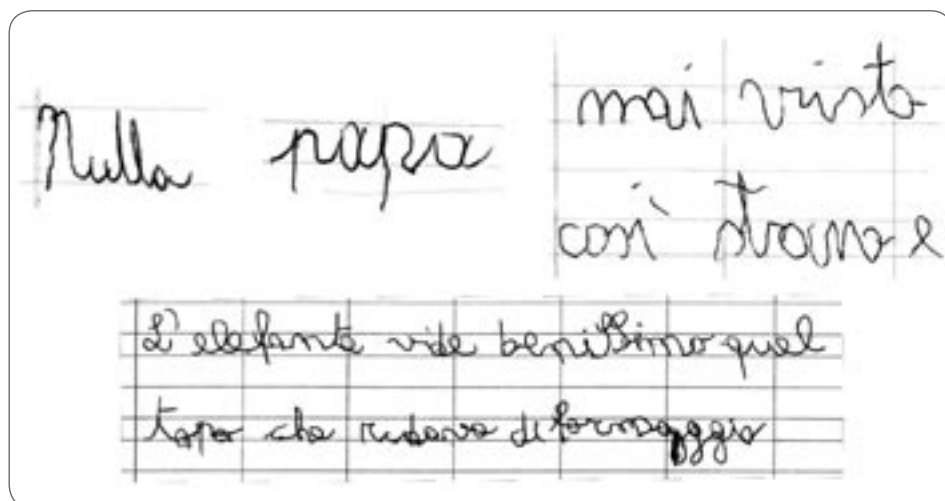 Nulla
papa
mai visto
così strano e
L'elefante vide benissimo quel
topo che rubava di formaggio